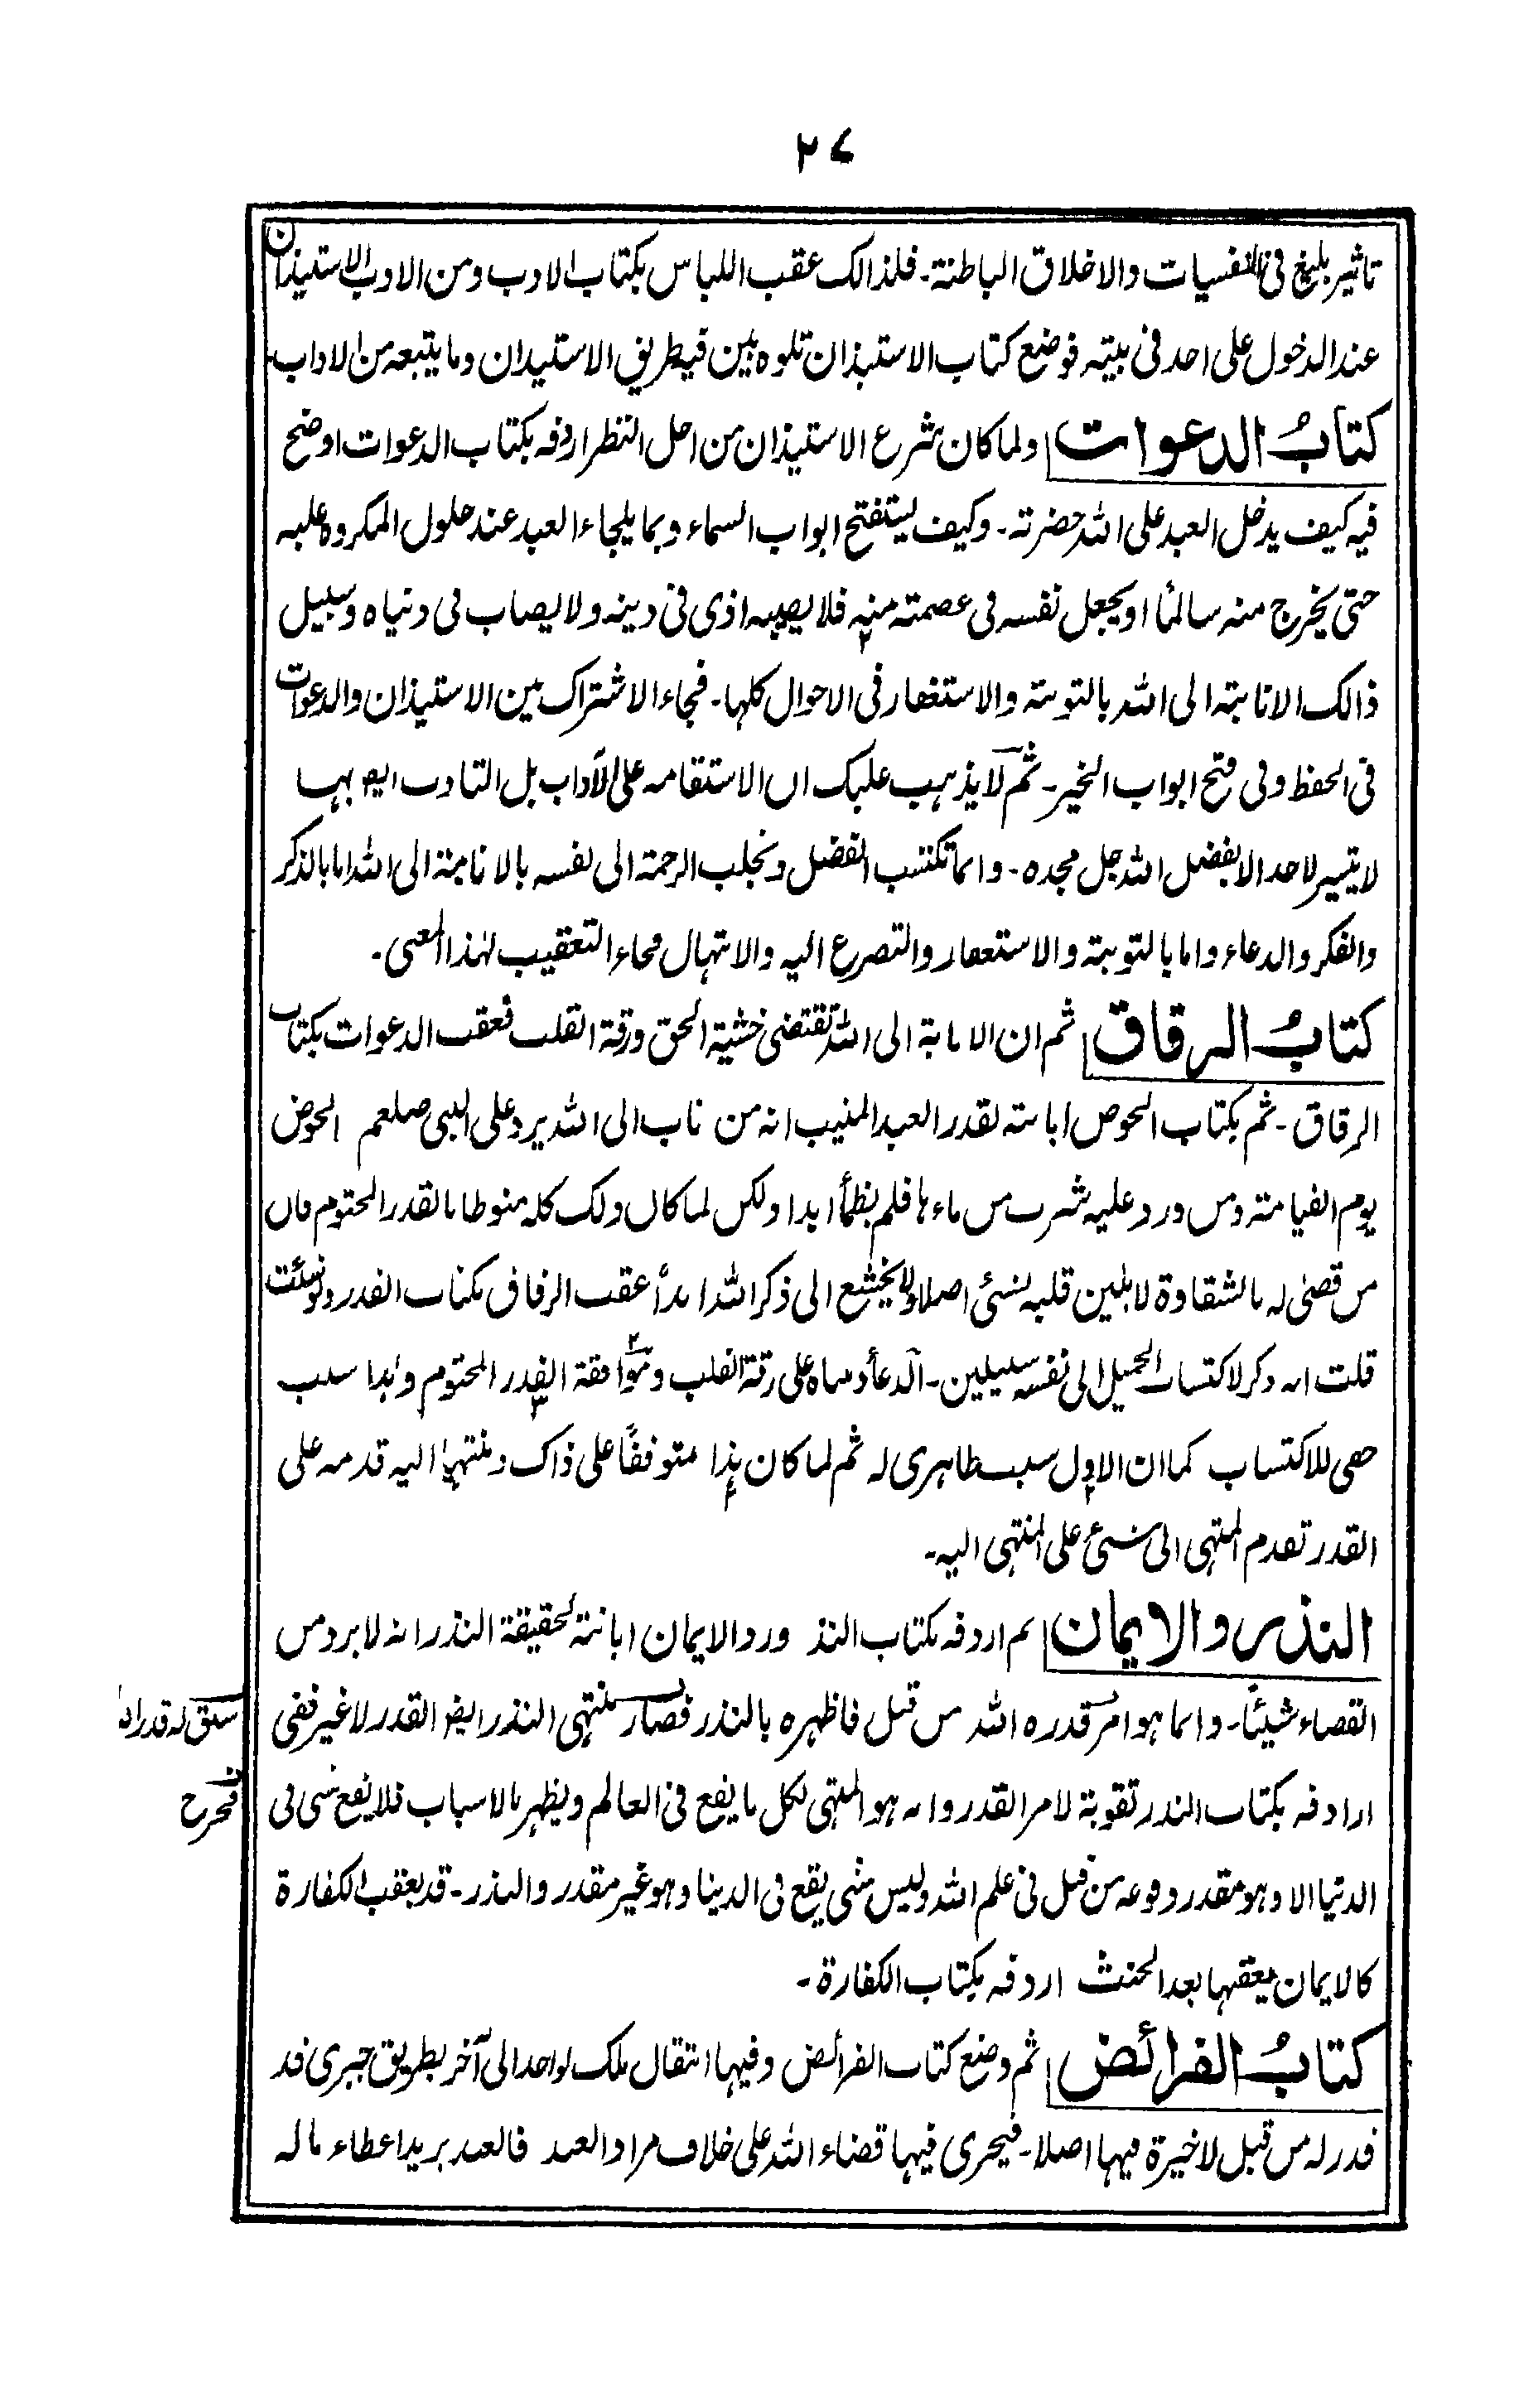 ۲۷
تاثیر بلیغ فی النفسیات والاخلاق الباطنة۔ فلذالک عقب اللباس بکتاب الادب ومن الادب الاستیذان
عند الدخول علی احد فی بیته فوضع کتاب الاستیذان تلوه یبین فیه طریق الاستیذان وما یتبعه من الاداب۔
کتابُ الدعوات ولما کان شرع الاستیذان من اجل النظر اردفه بکتاب الدعوات اوضح
فیه کیف یدخل العبد علی الله حضرته۔ وکیف یستفتح ابواب السماء وبما یلجاء العبد عند حلول المکروه علیه
حتی یخرج منه سالماً او یجعل نفسه فی عصمته منه فلا یصیبه اذی فی دینه ولا یصاب فی دنیاه وسبیل
ذالک الانابة الی الله بالتوبة والاستغفار فی الاحوال کلها۔ فجاء الاشتراک بین الاستیذان والدعوات
فی الحفظ وفی فتح ابواب الخیر۔ ثم لا یذهب علیک ان الاستقامه علی الآداب بل التادب ایضا بها
لا یتیسر لاحد الا بفضل الله جل مجده۔ وانما تکتسب الفضل وتجلب الرحمة الی نفسه بالانابة الی الله اما بالذکر
والفکر والدعاء واما بالتوبة والاستغفار والتضرع الیه والابتهال فجاء التعقیب لهذا المعنی۔
کتابُ الرقاق ثم ان الانابة الی الله تقتضی خشیة الحق ورقة القلب فعقب الدعوات بکتاب
الرقاق۔ ثم بکتاب الحوض ابانته لقدر العبد المنیب انه من ناب الی الله یرد علی النبی صلعم الحوض
یوم القیامة ومن ورد علیه شرب من ماءها فلم یظمأ ابدا ولکن لما کان ذلک کله منوطا بالقدر المحتوم فان
من قضی له بالشقاوة لا یلین قلبه لشئ اصلا ولا یخشع الی ذکر الله ابدأ عقب الرقاق بکتاب القدر ولو شئت
قلت انه ذکر لاکتساب الجمیل الی نفسه سبیلین۔ الدعأ ومبناه علی رقة القلب وموافقة القدر المحتوم وهذا سبب
خفی للاکتساب کما ان الاول سبب ظاهری له ثم لما کان هذا متوقفاً علی ذاک ومنتهیا الیه قدمه علی
القدر تقدم المنتهی الی شئ علی المنتهی الیه۔
النذر والایمان ثم اردفه بکتاب النذ ورد الایمان ابانة لحقیقة النذر انه لا یرد من
القضاء شیئاً۔ وانما هو امر قدره الله من قبل فاظهره بالنذر فصار منتهی النذر ایضا القدر لا غیر ففی
سبق له قدرا
فخرج
اردافه بکتاب النذر تقویة لامر القدر وانه هو المنتهی لکل ما یقع فی العالم ویظهر بالاسباب فلا یقع شی فی
الدنیا الا وهو مقدر وقوعه من قبل فی علم الله ولیس شی یقع فی الدنیا وهو غیر مقدر والنذر۔ قد یعقب الکفارة
کالایمان یعقبها بعد الحنث اردفه بکتاب الکفارة۔
کتابُ الفرائض ثم وضع کتاب الفرائض وفیها انتقال ملک لواحد الی آخر بطریق جبری قد
قدر له من قبل لا خیرة فیها اصلا۔ فیجری فیها قضاء الله علی خلاف مراد العبد فالعبد یرید اعطاء ما له